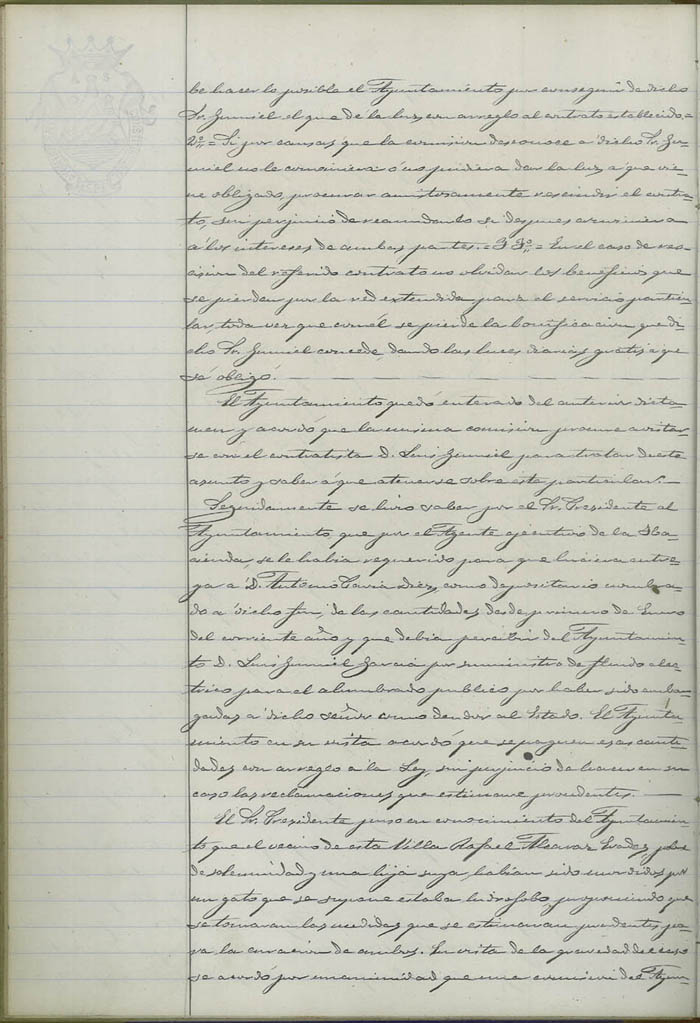 be hacer lo posible el Ayuntamiento por conseguir de dicho
Sr. Gumiel el que dé la luz con arreglo al contrato establecido =
2º = Si por causas que la comision desconoce a dicho Sr. Gu-
miel no le conviniera ó no pudiera dar la luz a que vie-
ne obligado, procurar amistosamente rescindir el contra-
to, sin perjuicio de reanudarlo si despues conviniera
á los intereses de ambas partes = Y 3º = En el caso de res-
cision del referido contrato no olvidar los beneficios que
se pierden por la red extendida para el servicio particu-
lar, toda vez que con él se pierde la bonificacion que di-
cho Sr. Gumiel concede, dando las luces diarias gratis a que
se obligó.
El Ayuntamiento quedó enterado del anterior dicta-
men y acordó que la misma comision procure avistar-
se con el contratista D. Luis Gumiel para tratar de este
asunto y saber á que atenerse sobre este particular.
Seguidamente se hizo saber por el Sr. Presidente al
Ayuntamiento, que por el Agente ejecutivo de la Ha-
cienda, se le habia requerido para que hiciera entre-
ga a D. Antonio Diez, como depositario nombra-
do a dicho fin, de las cantidades desde primero de Enero
del corriente año y que debia percibir del Ayuntamien-
to D. Luis Gumiel Garcia por suministro de fluido elec-
trico para el alumbrado publico por haber sido emba-
gadas a dicho señor como deudor al Estado. El Ayunta-
miento en su vista acordó que se paguen esas canti-
dades con arreglo a la Ley, sin perjuicio de hacer en su
caso las reclamaciones que estimare procedentes.
El Sr. Presidente puso en conocimiento del Ayuntamien-
to que el vecino de esta Villa Rafael pobre
de solemnidad y una hija suya, habian sido mordidos por
un gato que se supone estaba hidrofobo, proponiendo que
se tomaran las medidas que se estimaran prudentes pa-
ra la curacion de ambos. En vista de la gravedad del caso
se acordó por unanimidad que una comision del Ayun-